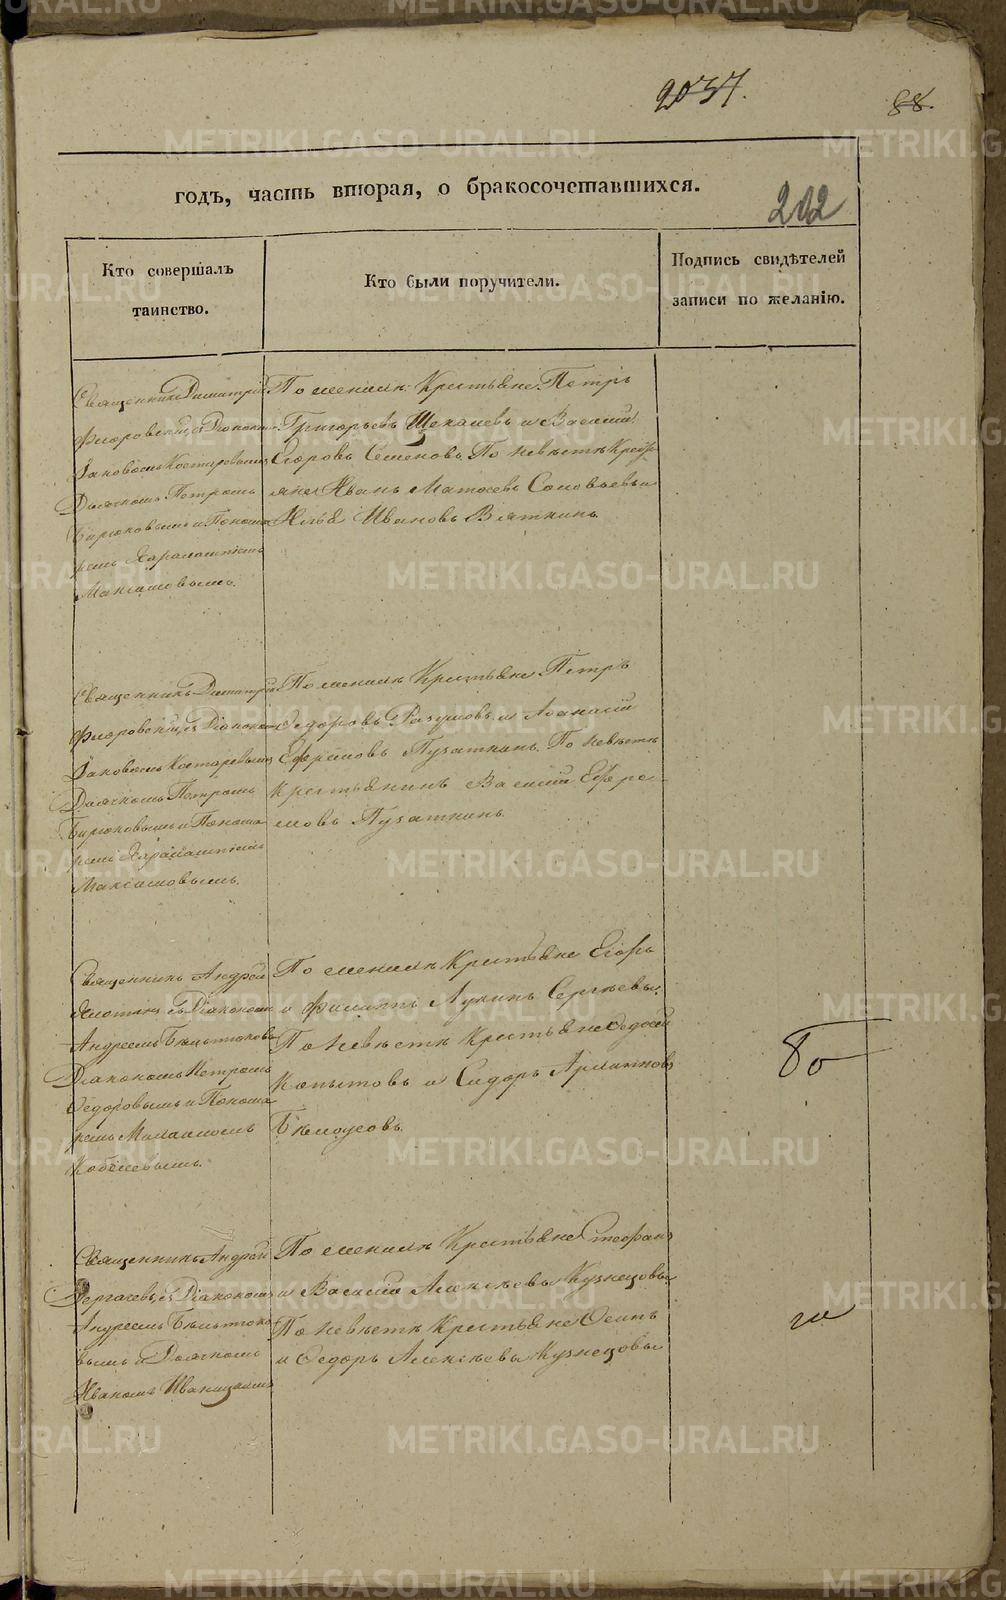 2037.
88.
годъ, часть вторая, о бракосочетавшихся.
202
Кто совершалъ
таинство.
Кто были поручители.
Подпись свидѣтелей
записи по желанію.
Священникъ Димитрій
Флоровскій, съ Діакономъ
Іаковомъ Костаревымъ
Дьячкомъ Петромъ
Бирюковымъ и Понома
ремъ Харалампіемъ
Максимовымъ.
По женихѣ Крестьяне Петръ
Григорьевъ Щекалевъ и Василій
Егоровъ Семеновъ, По невѣстѣ Кресть
яне Иванъ Матвѣевъ Соловьевъ и
Илья Ивановъ Вяткинъ.
Священникъ Димитрій
Флоровскій, съ Діакономъ
Іаковомъ Костаревымъ
Дьячкомъ Петромъ
Бирюковымъ и Понома
ремъ Харалампіемъ
Максимовымъ.
По женихѣ Крестьяне Петръ
Ѳедоровъ Разумовъ и Аѳанасій
Ефремовъ Пузаткинъ. По невѣстѣ
Крестьянинъ Василій Ефре-
мовъ Пузаткинъ.
Священникъ Андрей
съ Діакономъ
Андреемъ
Діакономъ Петромъ
Ѳедоровымъ и Понома
ремъ
Кобелевымъ.
По женихѣ Крестьяне Егоръ
и Филиппъ Лукинъ Сергѣевы,
По невѣстѣ Крестьяне Ѳедосей
Копытовъ и Сидоръ
Бѣлоусовъ.
80
Священникъ Андрей
Дергачевъ, съ Діакономъ
Андреемъ
вымъ и Дьячкомъ
Иваномъ Иваницкимъ
По женихѣ Крестьяне Стефанъ
и Василій Алексѣевы Кузнецовы
По невѣстѣ Крестьяне Осипъ
и Ѳедоръ Алексѣевы Кузнецовы
METRIKI.GASO-URAL.RU